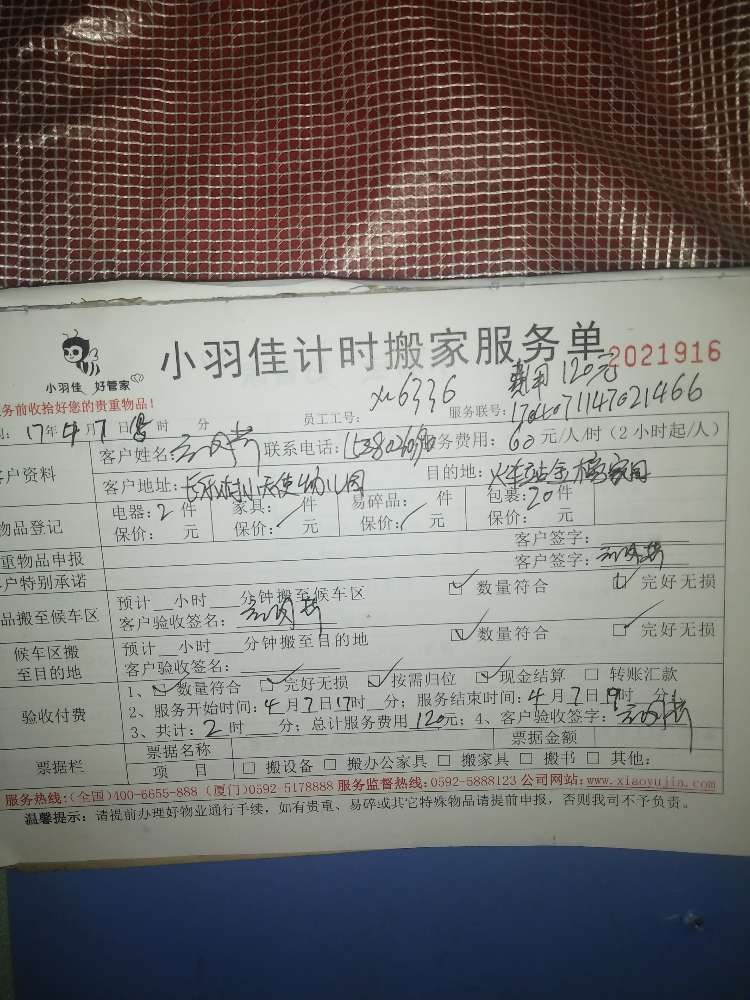 小羽佳计时搬家服务单
2021916
小羽佳 好管家
务前收拾好您的贵重物品!
费用 120元
员工工号: 6336
服务联号: 17040711147021466
17年4月7日 时 分
客户姓名: 联系电话: 务费用: 60元/人/时(2小时起/人)
户资料
客户地址: 天使幼儿园 目的地: 火车站金榜家园
物品登记
电器:2件 家具: 件 易碎品: 件 包裹:20件
保价: 元 保价: 元 保价: 元 保价: 元
重物品申报 客户签字:
户特别承诺 客户签字:
品搬至候车区
预计 小时 分钟搬至候车区 数量符合 完好无损
客户验收签名:
候车区搬至目的地
预计 小时 分钟搬至目的地 数量符合 完好无损
客户验收签名:
验收付费
1、 数量符合 完好无损 按需归位 现金结算 转账汇款
2、服务开始时间:4月7日17时 分; 服务结束时间:4月7日19时 分;
3、共计:2时 分; 总计服务费用120元; 4、客户验收签字:
票据栏
票据名称 票据金额
项目 搬设备 搬办公家具 搬家具 搬书 其他:
服务热线:(全国)400-6655-888 (厦门)0592 5178888 服务监督热线:0592-5888123 公司网站:www.xiaoyujia.com
温馨提示: 请提前办理好物业通行手续, 如有贵重、易碎或其它特殊物品请提前申报, 否则我司不予负责。